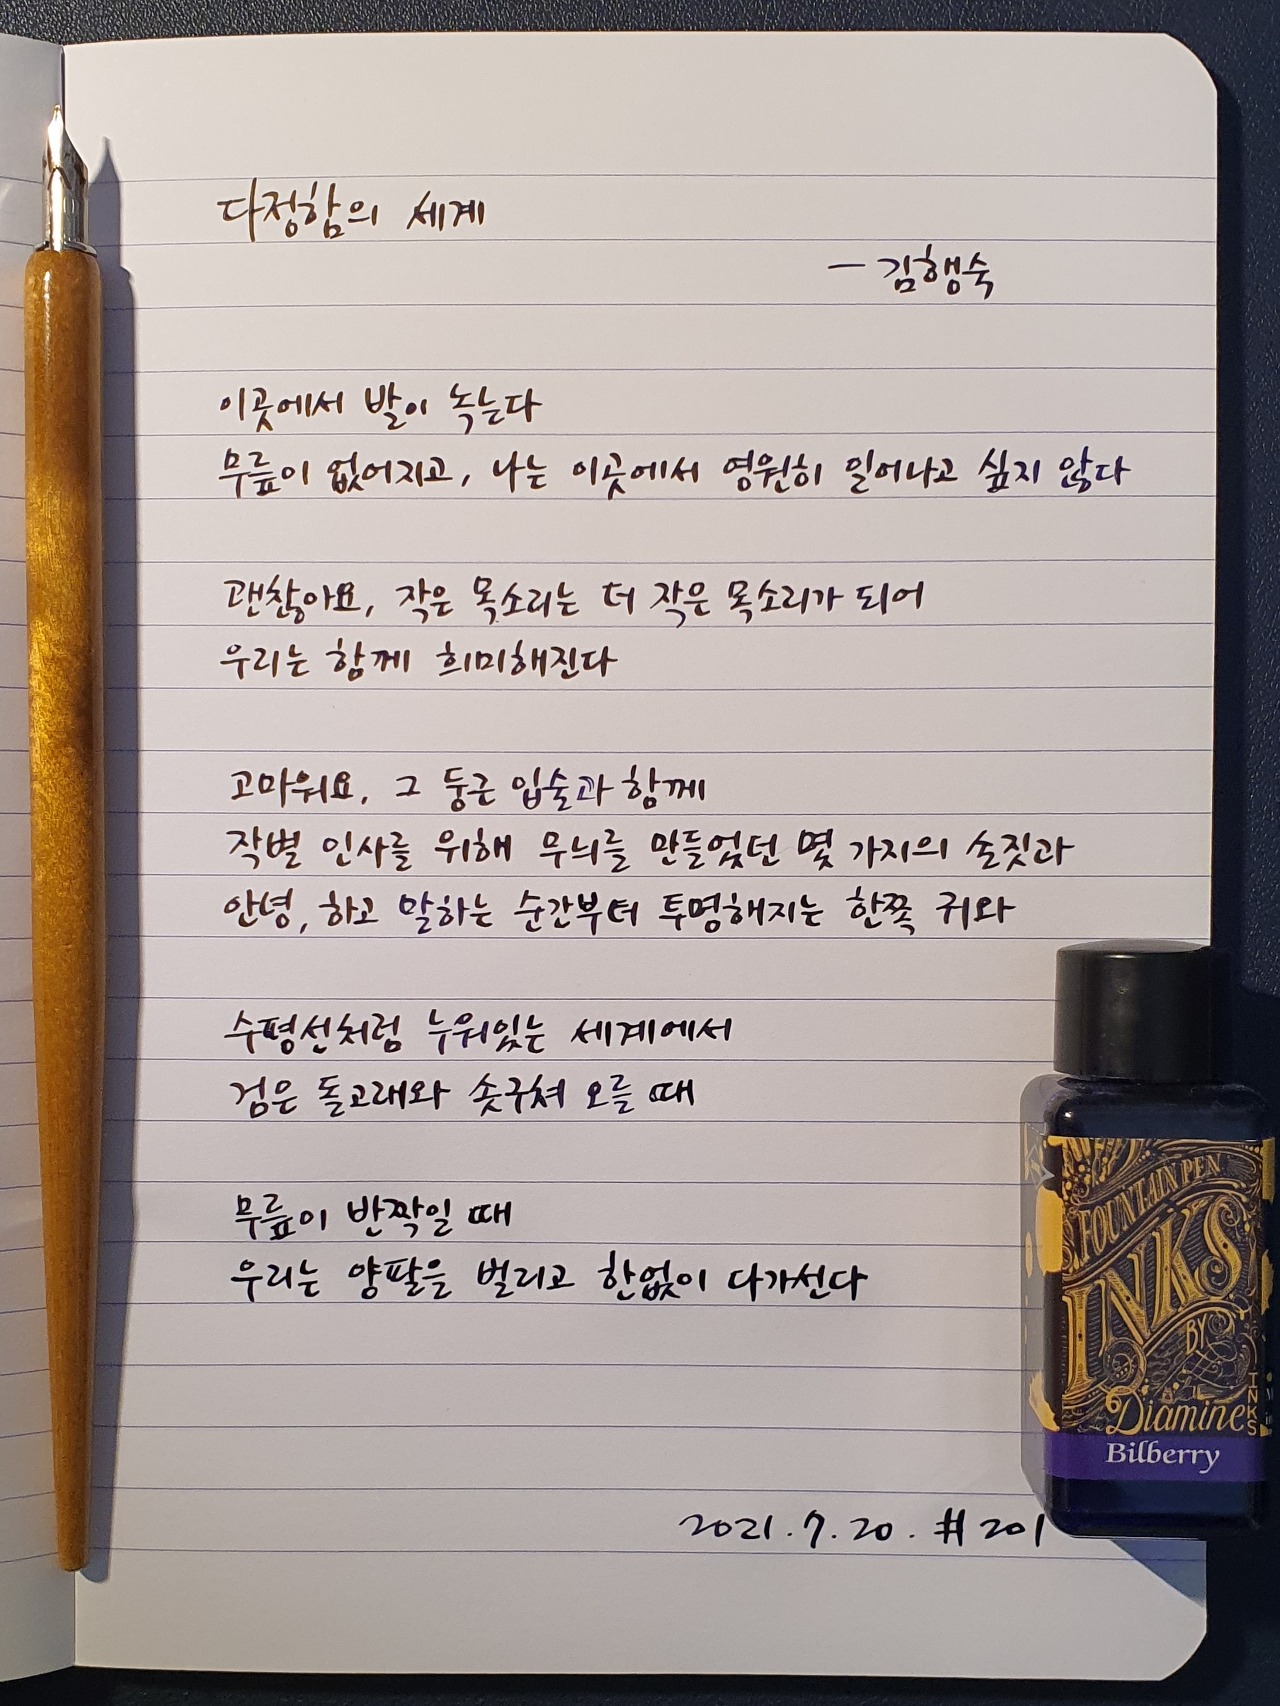 다정함의 세계
- 김행숙
이곳에서 발이 녹는다
무릎이 없어지고, 나는 이곳에서 영원히 일어나고 싶지 않다
괜찮아요, 작은 목소리는 더 작은 목소리가 되어
우리는 함께 희미해진다
고마워요, 그 둥근 입술과 함께
작별 인사를 위해 무늬를 만들었던 몇 가지의 손짓과
안녕, 하고 말하는 순간부터 투명해지는 한쪽 귀와
수평선처럼 누워있는 세계에서
검은 돌고래와 솟구쳐 오를 때
무릎이 반짝일 때
우리는 양팔을 벌리고 한없이 다가선다
2021.7.20. #201
FOUNTAIN PEN
INKS
BY
Diamine
INKS
Bilberry